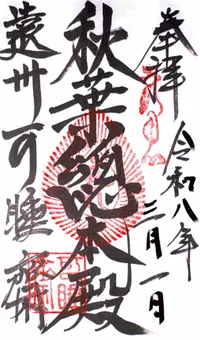 奉拝
令和八年
三月一日
秋葉總本殿
遠州可睡齋